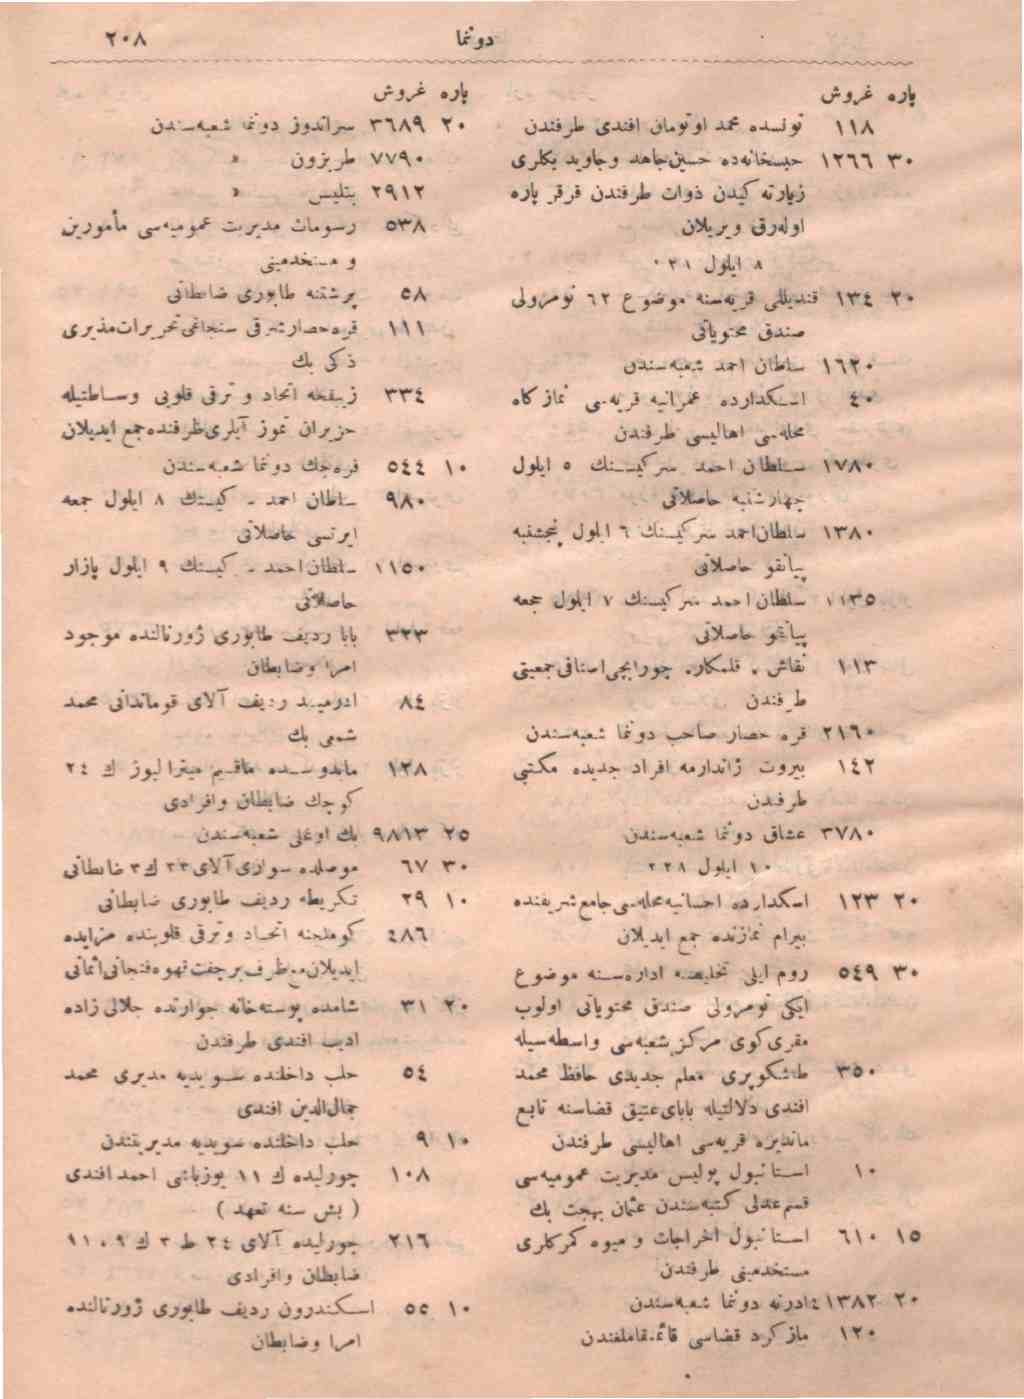 دوننما ٢٠٨
پاره غروش
١١٨ تونسده محمد اوتومان افندی طرفندن
٣٠ ١٢٦٦ حبسخانه‌ده حسین جاهد وجاوید بکلری
زیارته کیدن ذوات طرفندن قرقر پاره
اوله‌رق ویریلان
٨ ایلول
٢٠ ١٣٤ قندیللی قریه‌سنه موضوع ٦٢ نومرولی
صندق محتویاتی
١٦٢٠ سلطان احمد شعبه‌سندن
٤٠ اسکدارده عمرانیه قریه‌سی نمازکاه
محله‌سی اهالیسی طرفندن
١٧٨٠ سلطان احمد سرکیسنك ٥ ایلول
چهارشنبه حاصلاتی
١٣٨٠ سلطان احمد سرکیسنك ٦ ایلول پنجشنبه
پیانقو حاصلاتی
١١٣٥ سلطان احمد سرکیسنك ٧ ایلول جمعه
پیانقو حاصلاتی
١١٣ نقاش ، قلمکار، چورابجی اصنافی جمعیتی
طرفندن
٢١٦٠ قره حصار صاحب دوننما شعبه‌سندن
١٤٢ بیروت ژاندارمه افراد جدیده مکتبی
طرفندن
٣٧٨٠ عشاق دوننما شعبه‌سندن
١٠ ایلول
٢٠ ١٢٣ اسکدارده احسانیه محله‌سی جامع شریفنده
بیرام نمازنده جمع ایدیلان
٣٠ ٥٤٩ روم ایلی تخلیصیه اداره‌سنه موضوع
ایکی نومرولی صندق محتویاتی اولوب
مقری کوی مرکز شعبه‌سی واسطه‌سیله
٣٥٠ طاشکوپری معلم جدیدی حافظ محمد
افندی دلالتیله بابای عتیق قضاسنه تابع
ماندیره قریه‌سی اهالیسی طرفندن
١٠ استانبول پولیس مدیریت عمومیه‌سی
قسم عدلی کتبه‌سندن عثمان بهجت بك
١٥ ٦١٠ استانبول اخراجات و میوه کمرکلری
مستخدمینی طرفندن
٢٠ ١٣٨٢٤ ادرنه دوننما شعبه‌سندن
١٢٠ ملازکرد قضاسی قائمقاملغندن
پاره غروش
٢٠ ٣٦٨٩ سراندوز دوننما شعبه‌سندن
٧٧٩٠ طربزون »
٢٩١٢ بتلیس »
٥٣٨ رسومات مدیریت عمومیه‌سی مأمورین
و مستخدمینی
٥٨ پرشتنه طابوری ضابطانی
١١١ قره‌حصار شرقی سنجاغی تحریرات مدیری
ذکی بك
٣٣٤ زیبفچه اتحاد و ترقی قلوبی وساطتیله
حزیران تموز آیلری ظرفنده جمع ایدیلان
١٠ ٥٤٤ قره‌جك دوننما شعبه‌سندن
٩٨٠ سلطان احمد سرکیسنك ٨ ایلول جمعه
ایرتسی حاصلاتی
١١٥٠ سلطان احمد سرکیسنك ٩ ایلول پازار
حاصلاتی
٣٢٣ بابا ردیف طابوری ژورنالنده موجود
امرا وضابطان
٨٤ ادرمید ردیف آلای قوماندانی محمد
شمسی بك
١٢٨ ماقسیم میترالیوز ك ٢٤
کوچك ضابطان وافرادی
٢٥ ٩٨١٣ بك اوغلی شعبه‌سندن
٣٠ ٦٧ موصلده سواری آلای ٣٣ ك ٣ ضابطانی
١٠ ٢٩ تکریطه ردیف طابوری ضابطانی
٤٨٦ کوملجنه اتحاد وترقی قلوبنده مزایده
ایدیلان مع ظرف برچفت قهوه فنجانی اثمانی
٢٠ ٣١ شامده پوسته‌خانه جوارنده جلالی زاده
ادیب افندی طرفندن
٥٤ حلب داخلنده سویدیه مدیری محمد
جمال‌الدین افندی
١٠ ٩ حلب داخلنده سویدیه مدیریتندن
١٠٨ چورلیده ك ١١ یوزباشی احمد افندی
( بش سنه تعهد )
٢١٦ چورلیده آلای ٢٤ ط ٣ ك ٩، ١١
ضابطان وافرادی
١٠ ٥٥ اسکندرون ردیف طابوری ژورنالنده
امرا وضابطان